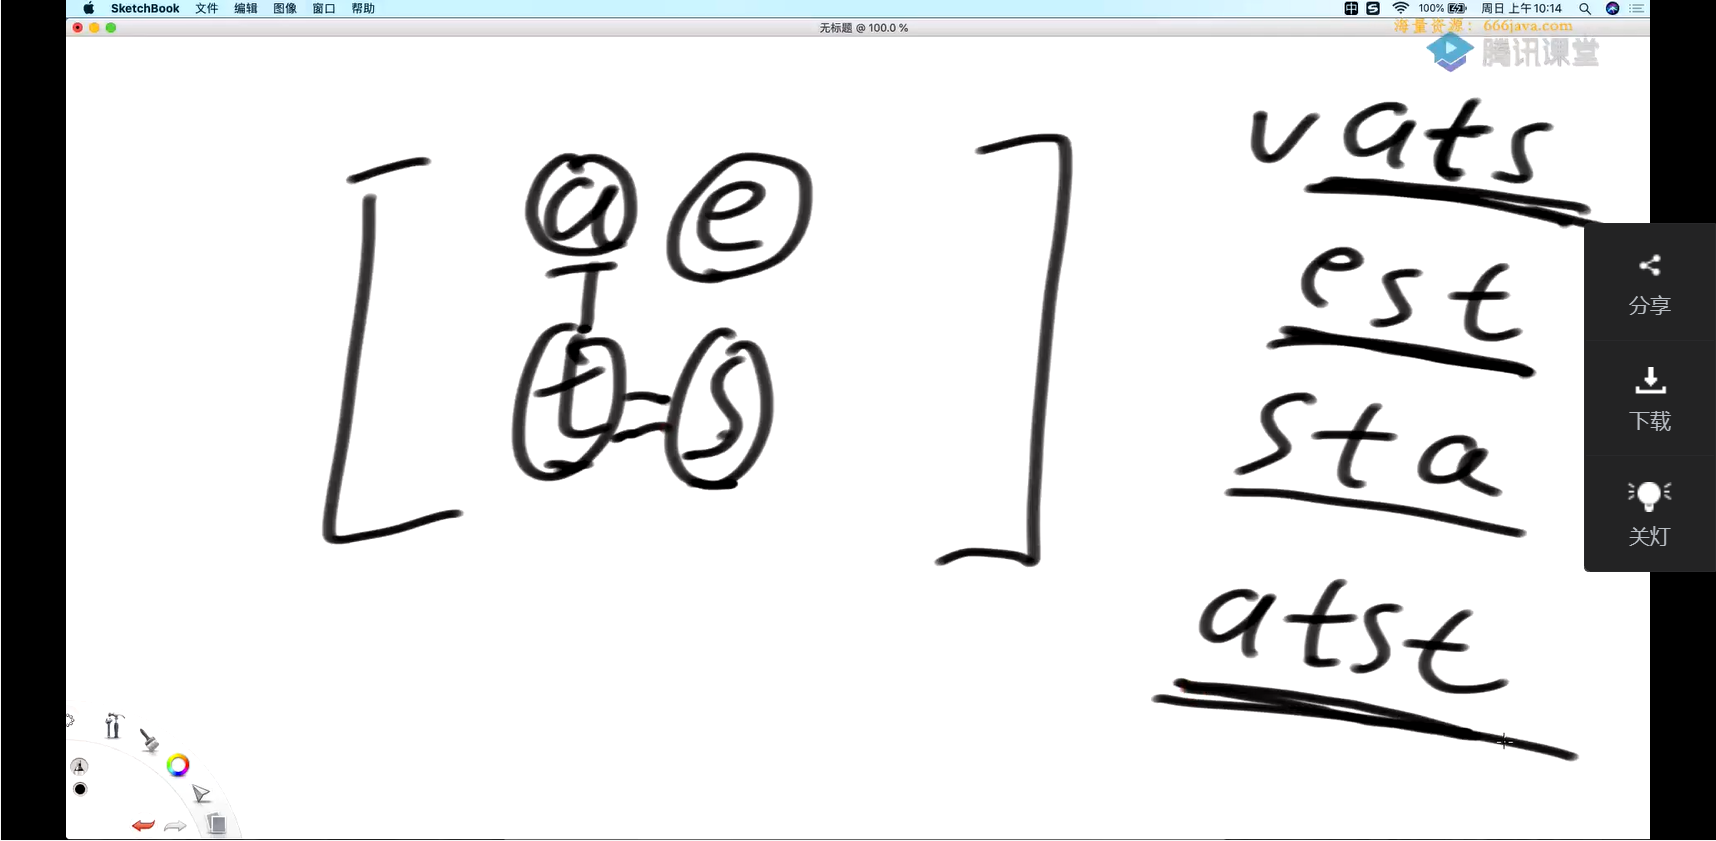 SketchBook 文件 编辑 图像 窗口 帮助
中 S 100% 周日 上午10:14
无标题 @ 100.0 %
海量资源：666java.com
腾讯课堂
a e
t s
vats
est
sta
atst
分享
下载
关灯